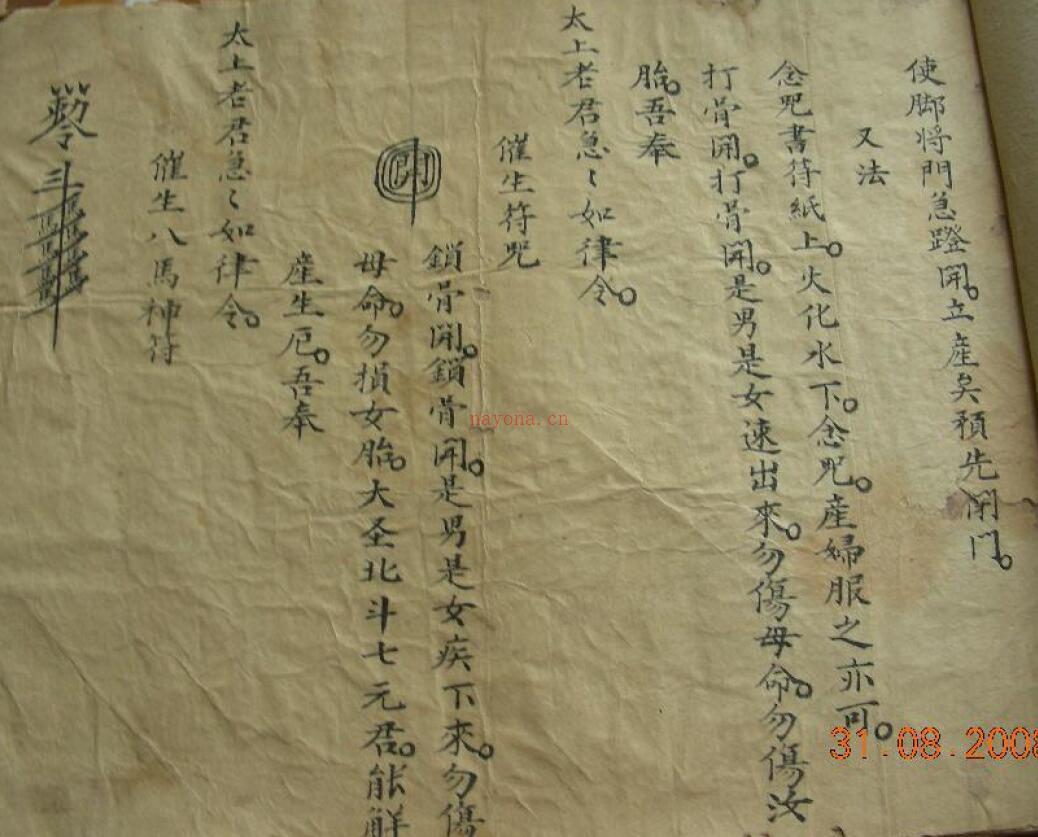 使脚将門急蹬開。立産矣預先闭门。
又法
念咒書符紙上。火化水下。念咒。産婦服之亦可。
打骨開。打骨開。是男是女速出來。勿傷母命。勿傷汝
胎。吾奉
太上老君急〻如律令。
催生符咒
開
鎖骨開。鎖骨開。是男是女疾下來。勿傷
母命。勿損女胎。大圣北斗七元君。能解
産生厄。吾奉
太上老君急〻如律令。
催生八馬神符
nayona.cn
31.08.2008